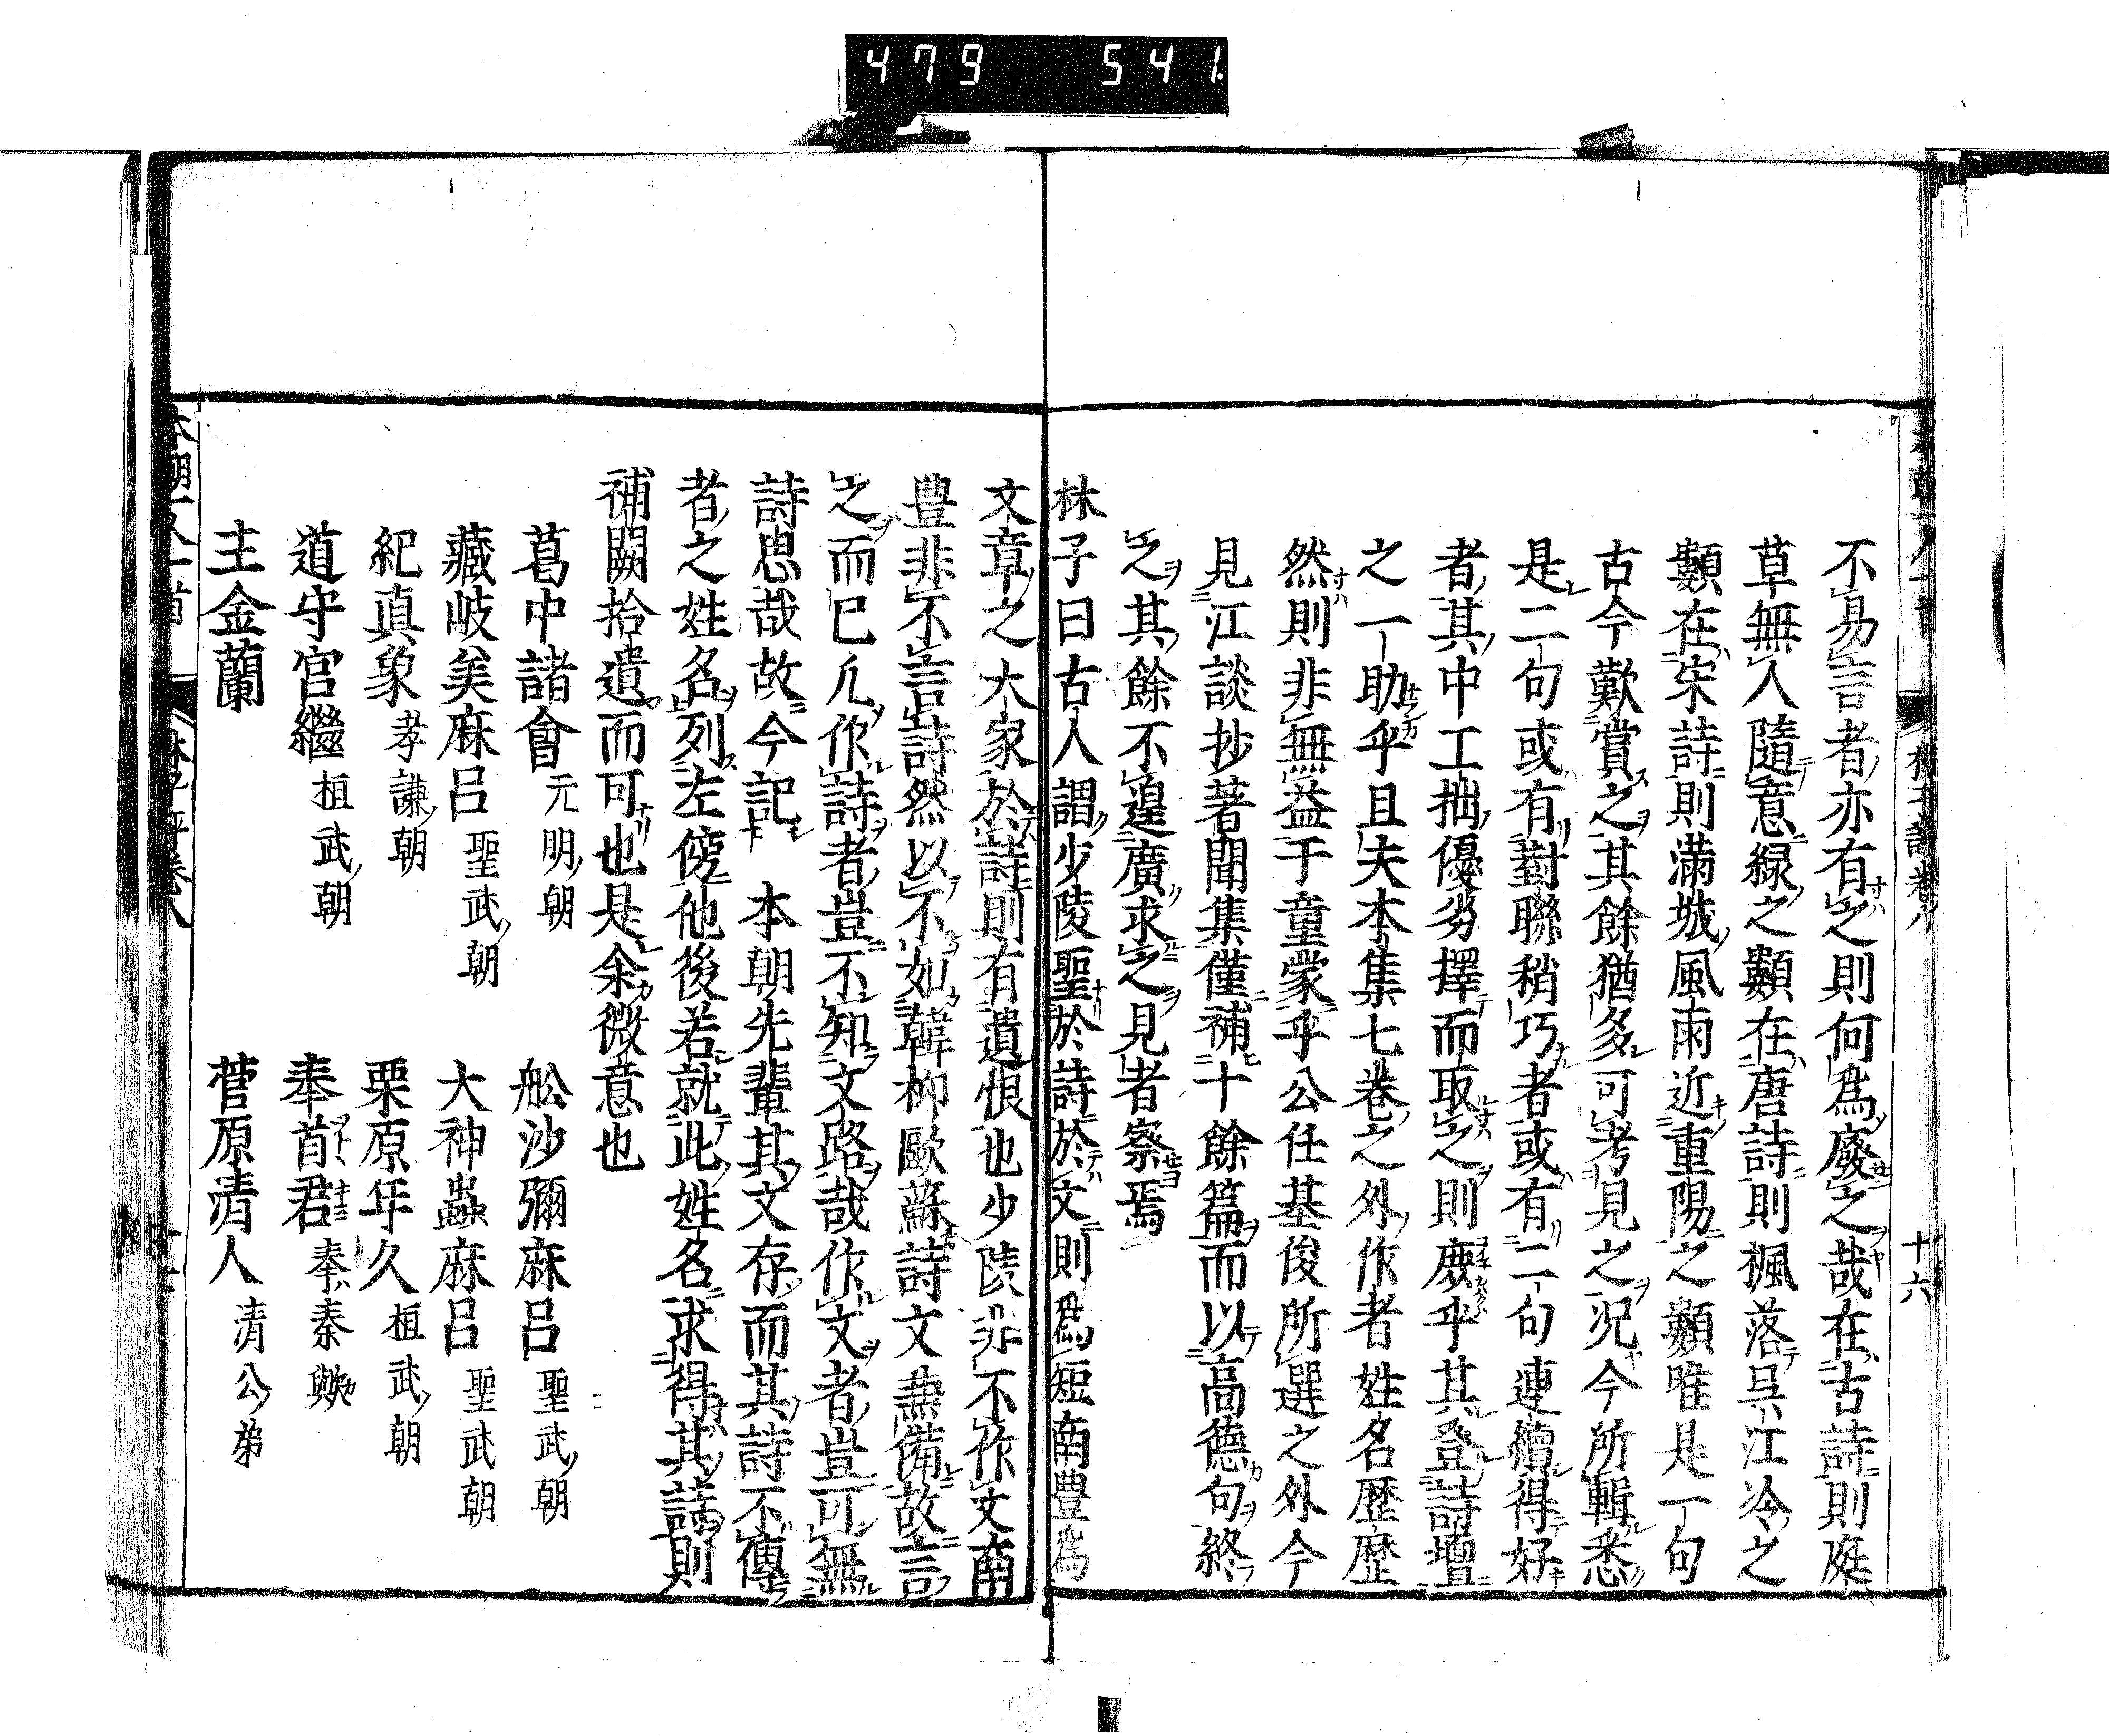 479 541
十六
不易言者亦有之則何爲廢之哉在古詩則庭
草無人隨意緑之類在唐詩則楓落吳江冷之
類在宋詩則滿城風雨近重陽之類唯是一句
古今歎賞之其餘猶多可考見之況今所輯悉
是二句或有對聯稍巧者或有二句連續得好
者其中工拙優劣擇而取之則庶乎其登詩壇
之一助乎且夫本集七卷之外作者姓名歴歴
然則非無益于童蒙乎公任基俊所選之外今
見江談抄著聞集僅補十餘篇而以高德句終
之其餘不遑廣求之見者察焉
林子曰古人謂少陵聖於詩於文則爲短南豐爲
文章之大家於詩則有遺恨也少陵非不作文南
豊非不言詩然以不如韓柳歐蘇詩文兼備故言
之而已凡作詩者豈不知文路哉作文者豈可無
詩思哉故今記 本朝先輩其文存而其詩不傳
者之姓名列左傍他後若就此姓名求得其詩則
補闕拾遺而可也是余微意也
葛中諸會 元明朝 舩沙彌麻呂 聖武朝
藏岐美麻呂 聖武朝 大神蟲麻呂 聖武朝
紀真象 孝謙朝 栗原年久 桓武朝
道守宮繼 桓武朝 奉首君 奉秦歟
主金蘭 菅原清人 清公弟
本朝一人一首